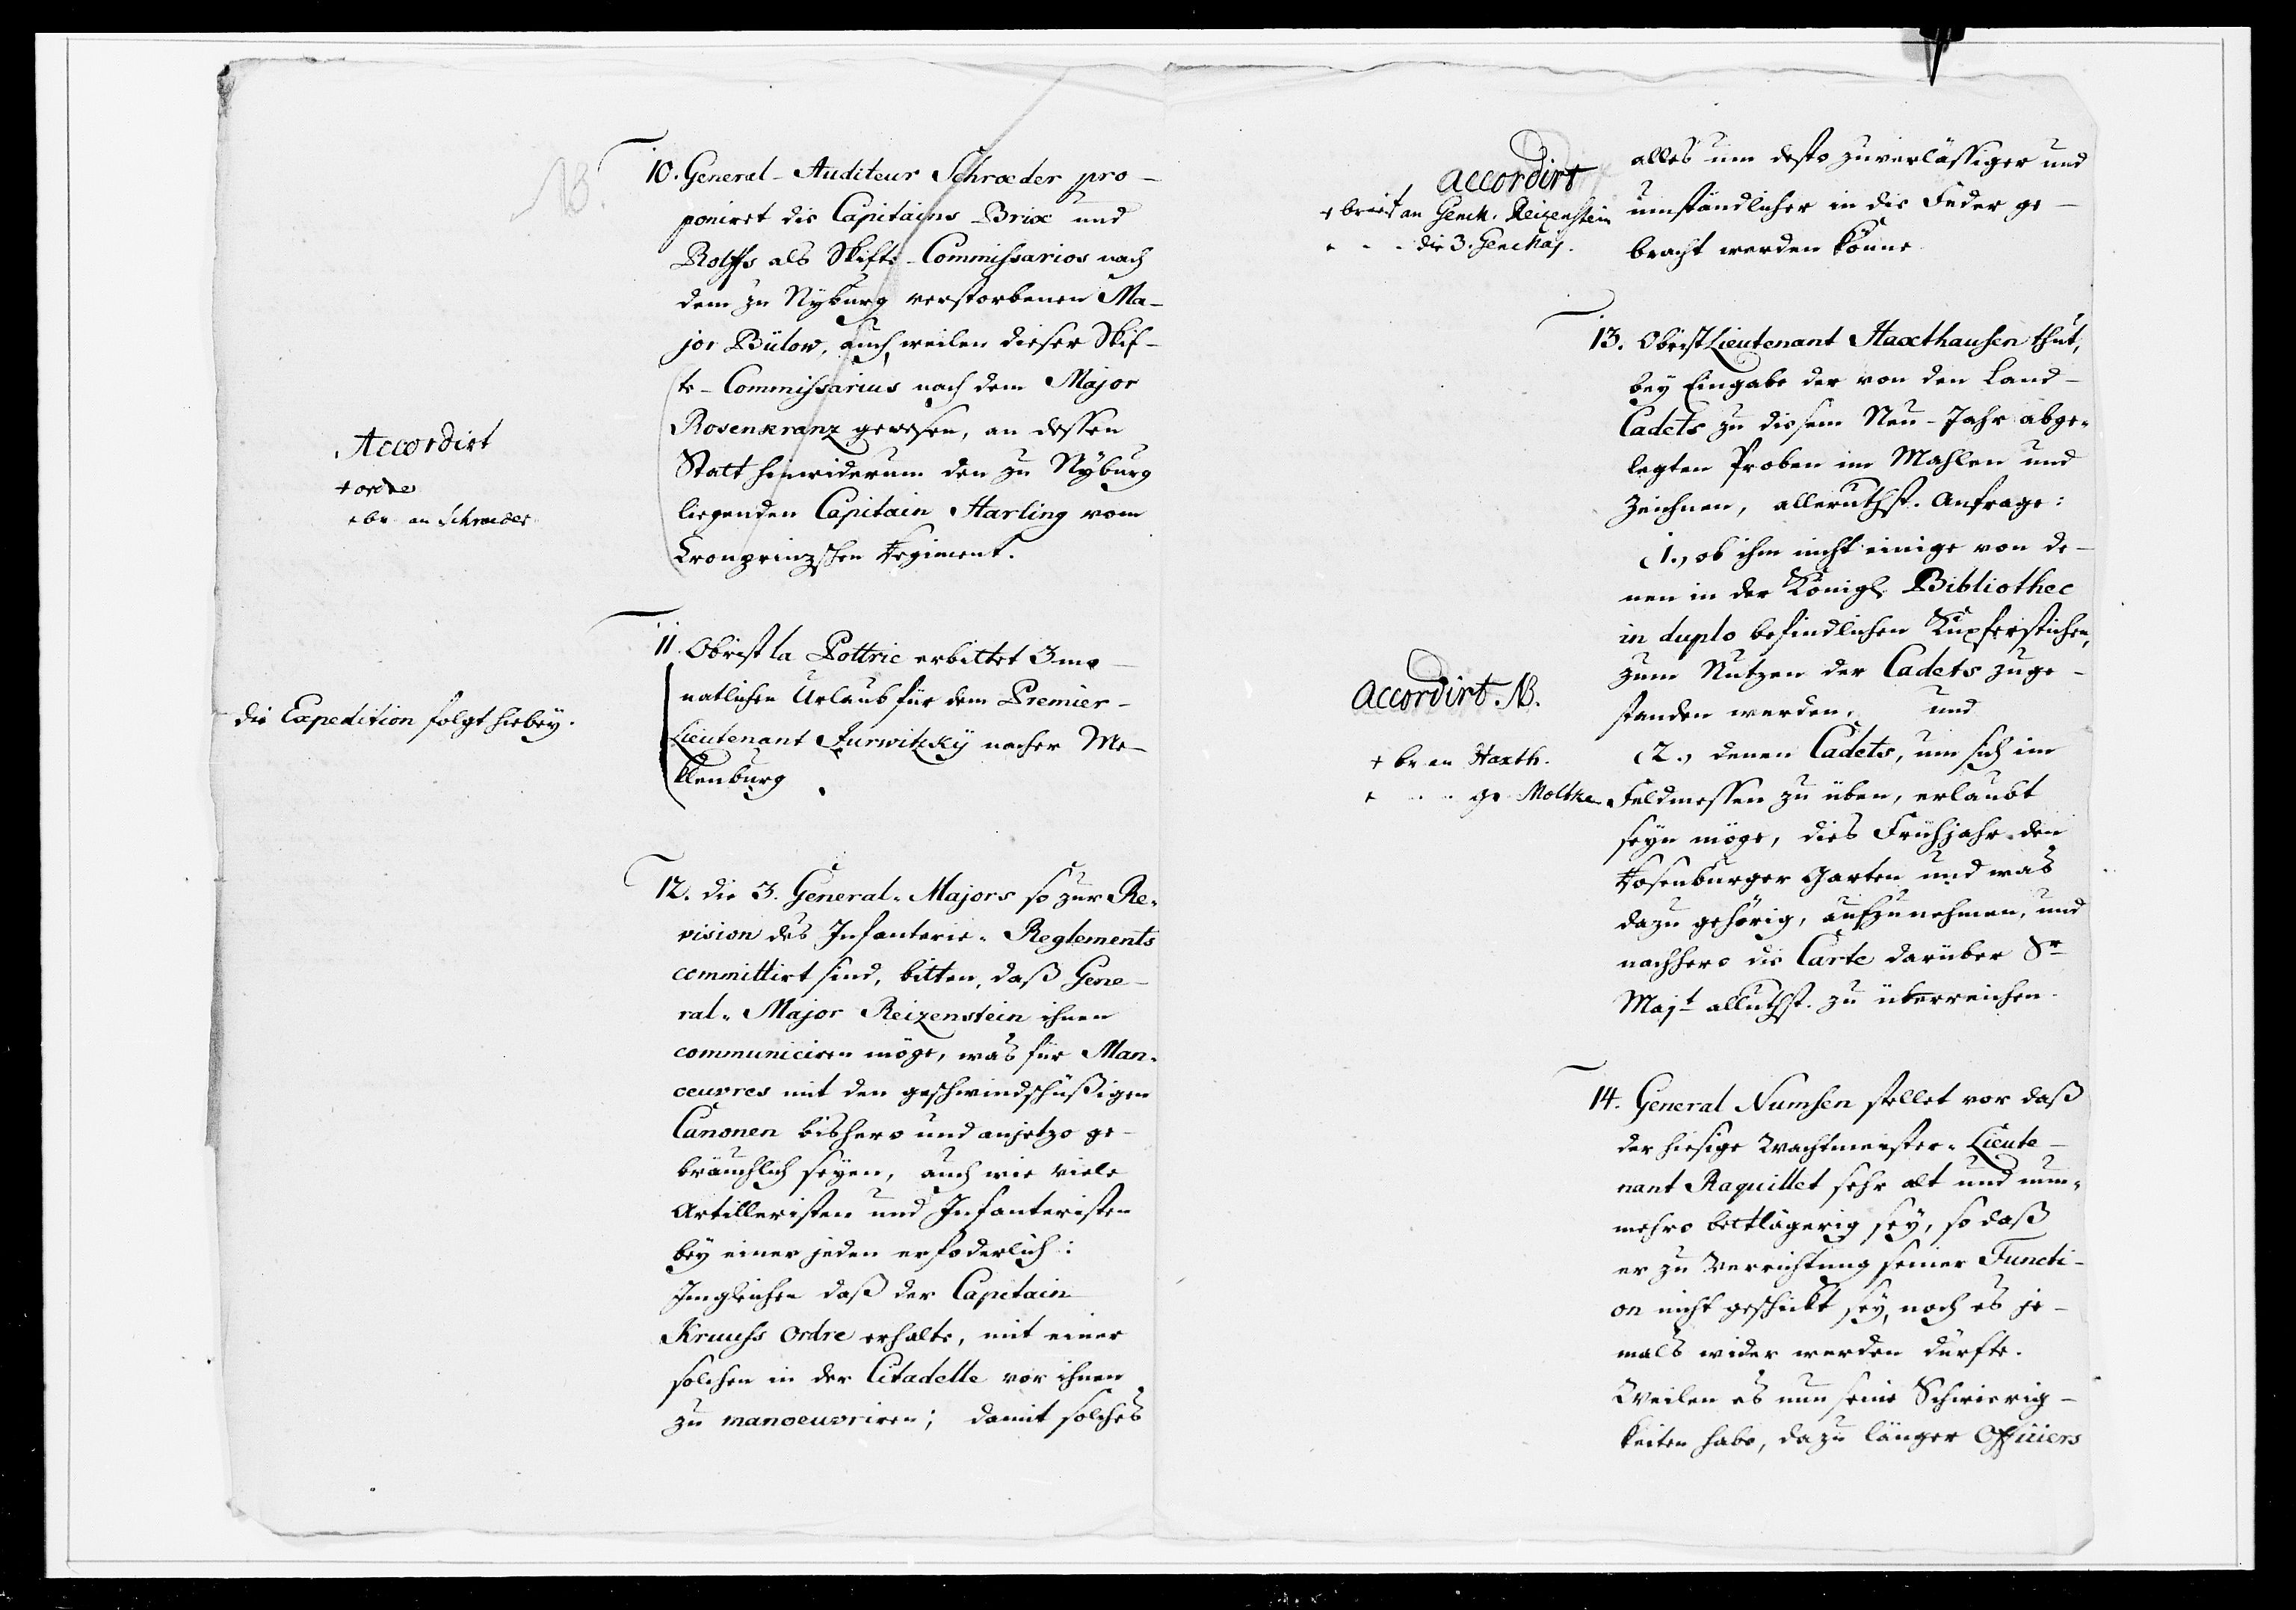 NB.
10. General-Auditeur Schroeder pro-
poniret die Capitains Brix und
Rolffs als Skifte-Commissarios nach
dem zu Nyburg verstorbenen Ma-
jor Bülow, auch weilen dieser Skif-
te-Commissarius nach dem Major
Rosenkranz gewesen, an dessen
Statt hinwiderum den zu Nyburg
liegenden Capitain Harling vom
Kronprinzschen Regiment.
Accordirt
+ ordre
+ br an Schroeder
11. Obrist la Pottrie erbittet 3 mo-
natlichen Urlaub für dem Premier-
Lieutenant Zurwitzkÿ nacher Me-
klenburg
die Expedition folgt hiebey.
12. die 3. General-Majors so zur Re-
vision des Infanterie-Reglements
committirt sind, bitten, daß Gene-
ral-Major Reizenstein ihnen
communiciren möge, was für Man-
oeuvres mit den geschwindschüßigen
Canonen bishero und anjetzo ge-
bräuchlich seyen, auch wie viele
Artilleristen und Infanteristen
bey einer jeden erfoderlich:
Imgleichen daß der Capitain
Kruuss ordre erhalte, mit einer
solchen in der Citadelle vor ihnen
zu manoeuvriren; damit solches
alles um desto zuverlässiger und
umständlicher in die Feder ge-
bracht werden könne
accordirt
+ brief an GenM. Reizenstein
+ - - die 3. GenMaj.
13. ObristLieutenant Haxthausen thut,
bey Eingabe der von den Land-
Cadets zu diesem Neu-Jahr abge-
legten Proben im Mahlen und
Zeichnen, alleruthst. Anfrage:
(1., ob ihm nicht einige von de-
nen in der Königl. Bibliothec
in duplo befindlichen Kupferstichen,
zum Nutzen der Cadets zuge-
standen werden, und
(2., denen Cadets, um sich im
Feldmessen zu üben, erlaubt
seyn möge, dies Frühjahr den
Rosenburger Garten und was
dazu gehörig, aufzunehmen, und
nachhero die Carte darüber Sr
Majt alluthst. zu überreichen.
accordirt. NB.
+ br an Haxth.
+ - - gr Moltke
14. General Numsen stellet vor daß
der hiesige Wachtmeister-Lieute-
nant Raquillet sehr alt und nun-
mehro bettlägerig sey, so daß
er zu Verrichtung seiner Functi-
on nicht geschickt sey, noch es je-
mals wider werden dürfte.
Weilen es nun seine Schwierig-
keiten habe, dazu länger Officiers